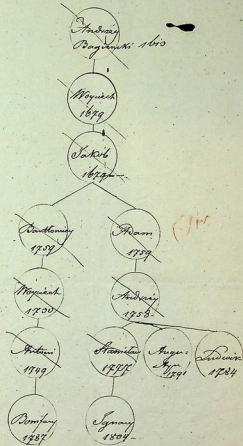 Andrzéy
Bagieński 1610
Woyciech
1679
Jakób
1679
Bartłomiey
1759
Adam
1759
Woyciech
1700
Andrzéy
1758
Antoni
1799
Stanisław
1777
Augu-
styn
1791
Ludwik
1784
Bonifacy
1787
Ignacy
1804